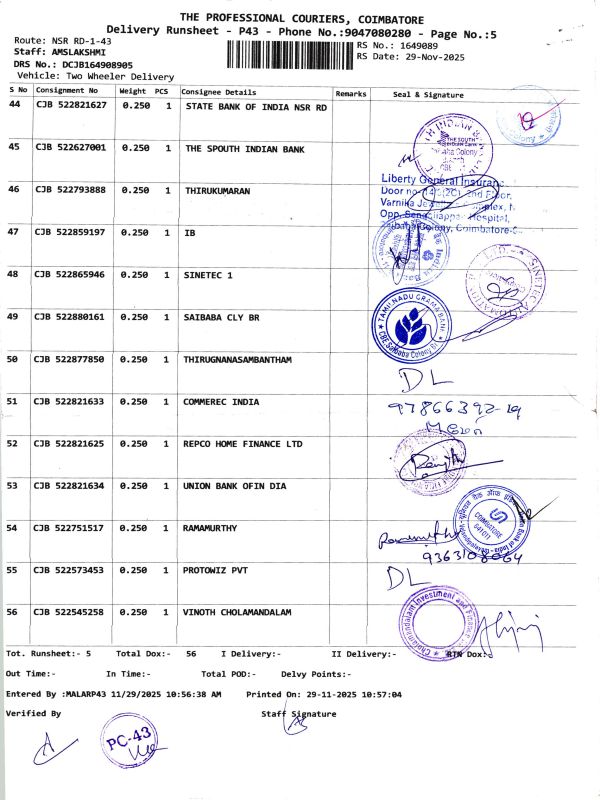 THE PROFESSIONAL COURIERS, COIMBATORE
Delivery Runsheet - P43 - Phone No.:9047080280 - Page No.:5
Route: NSR RD-1-43
RS No.: 1649089
Staff: AMSLAKSHMI
RS Date: 29-Nov-2025
DRS No.: DCJB164908905
Vehicle: Two Wheeler Delivery
S No Consignment No Weight PCS Consignee Details Remarks Seal & Signature
44 CJB 522821627 0.250 1 STATE BANK OF INDIA NSR RD
45 CJB 522627001 0.250 1 THE SPOUTH INDIAN BANK
THE SOUTH
46 CJB 522793888 0.250 1 THIRUKUMARAN
Liberty General Insurance
Door no
2nd Floor,
Varnika
Opp. Hospital,
Saibaba Colony, Coimbatore-
47 CJB 522859197 0.250 1 IB
48 CJB 522865946 0.250 1 SINETEC 1
SINETEC AUTOMATION
49 CJB 522880161 0.250 1 SAIBABA CLY BR
TAMIL NADU GRAMA BANK
CBE. SaiBaba Colony Br
50 CJB 522877850 0.250 1 THIRUGNANASAMBANTHAM
DL
51 CJB 522821633 0.250 1 COMMEREC INDIA
52 CJB 522821625 0.250 1 REPCO HOME FINANCE LTD
53 CJB 522821634 0.250 1 UNION BANK OFIN DIA
COIMBATORE
54 CJB 522751517 0.250 1 RAMAMURTHY
9363108064
55 CJB 522573453 0.250 1 PROTOWIZ PVT
DL
56 CJB 522545258 0.250 1 VINOTH CHOLAMANDALAM
Cholamandalam Investment and Finance
Tot. Runsheet:- 5 Total Dox:- 56 I Delivery:- II Delivery:- RTN Dox:
Out Time:- In Time:- Total POD:- Delvy Points:-
Entered By :MALARP43 11/29/2025 10:56:38 AM Printed On: 29-11-2025 10:57:04
Verified By Staff Signature
PC-43